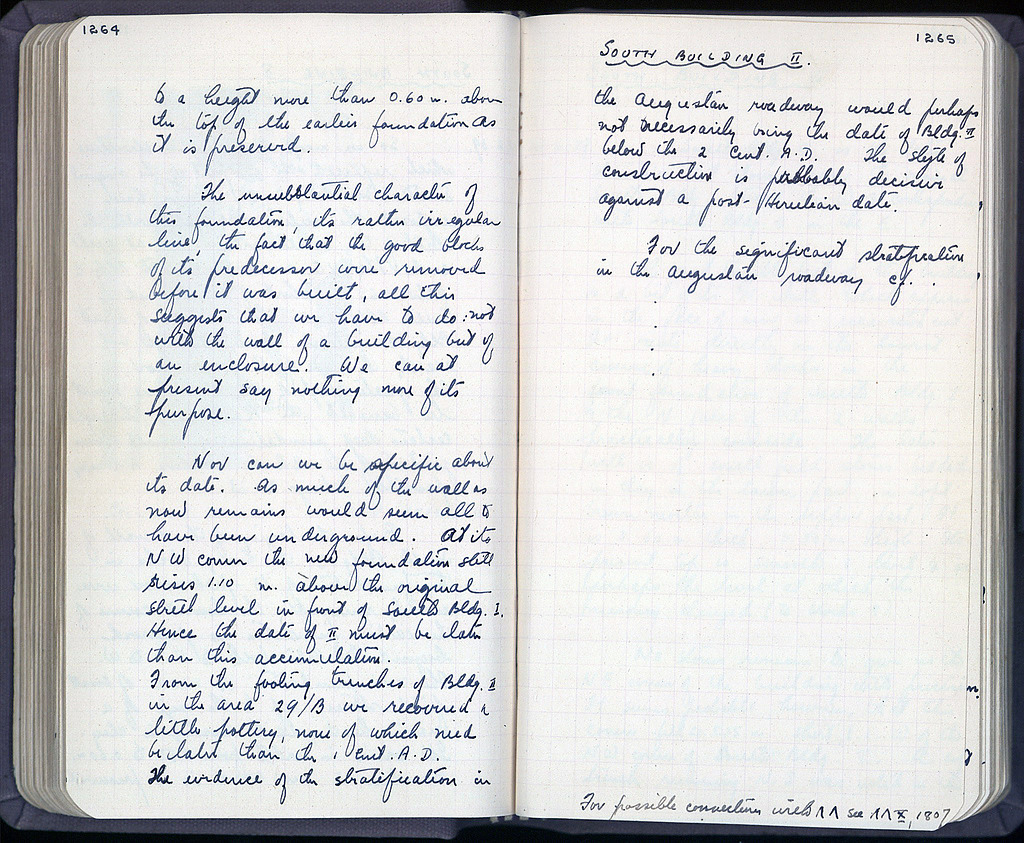 1264
to a height more than 0.60 m. above
the top of the earlier foundation as
it is preserved.
The unsubstantial character of
this foundation, its rather irregular
line, the fact that the good blocks
of its predecessor were removed
before it was built, all this
suggests that we have to do not
with the wall of a building but of
an enclosure. We can at
present say nothing more of its
purpose.
Nor can we be specific about
its date. As much of the wall as
now remains would seem all to
have been underground. At its
NW corner the new foundation still
rises 1.10 m. above the original
street level in front of South Bldg. I.
Hence the date of II must be later
than this accumulation.
From the footing trenches of Bldg. II
in the area 29/B we recovered a
little pottery, none of which need
be later than the 1 cent. A.D.
The evidence of the stratification in
1265
SOUTH BUILDING II.
the Augustan roadway would perhaps
not necessarily bring the date of Bldg. II
below the 2 cent. A.D. The style of
construction is probably decisive
against a post-Herulian date.
For the significant stratification
in the Augustan roadway cf. .
For possible connection with ΛΛ see ΛΛ X, 1807